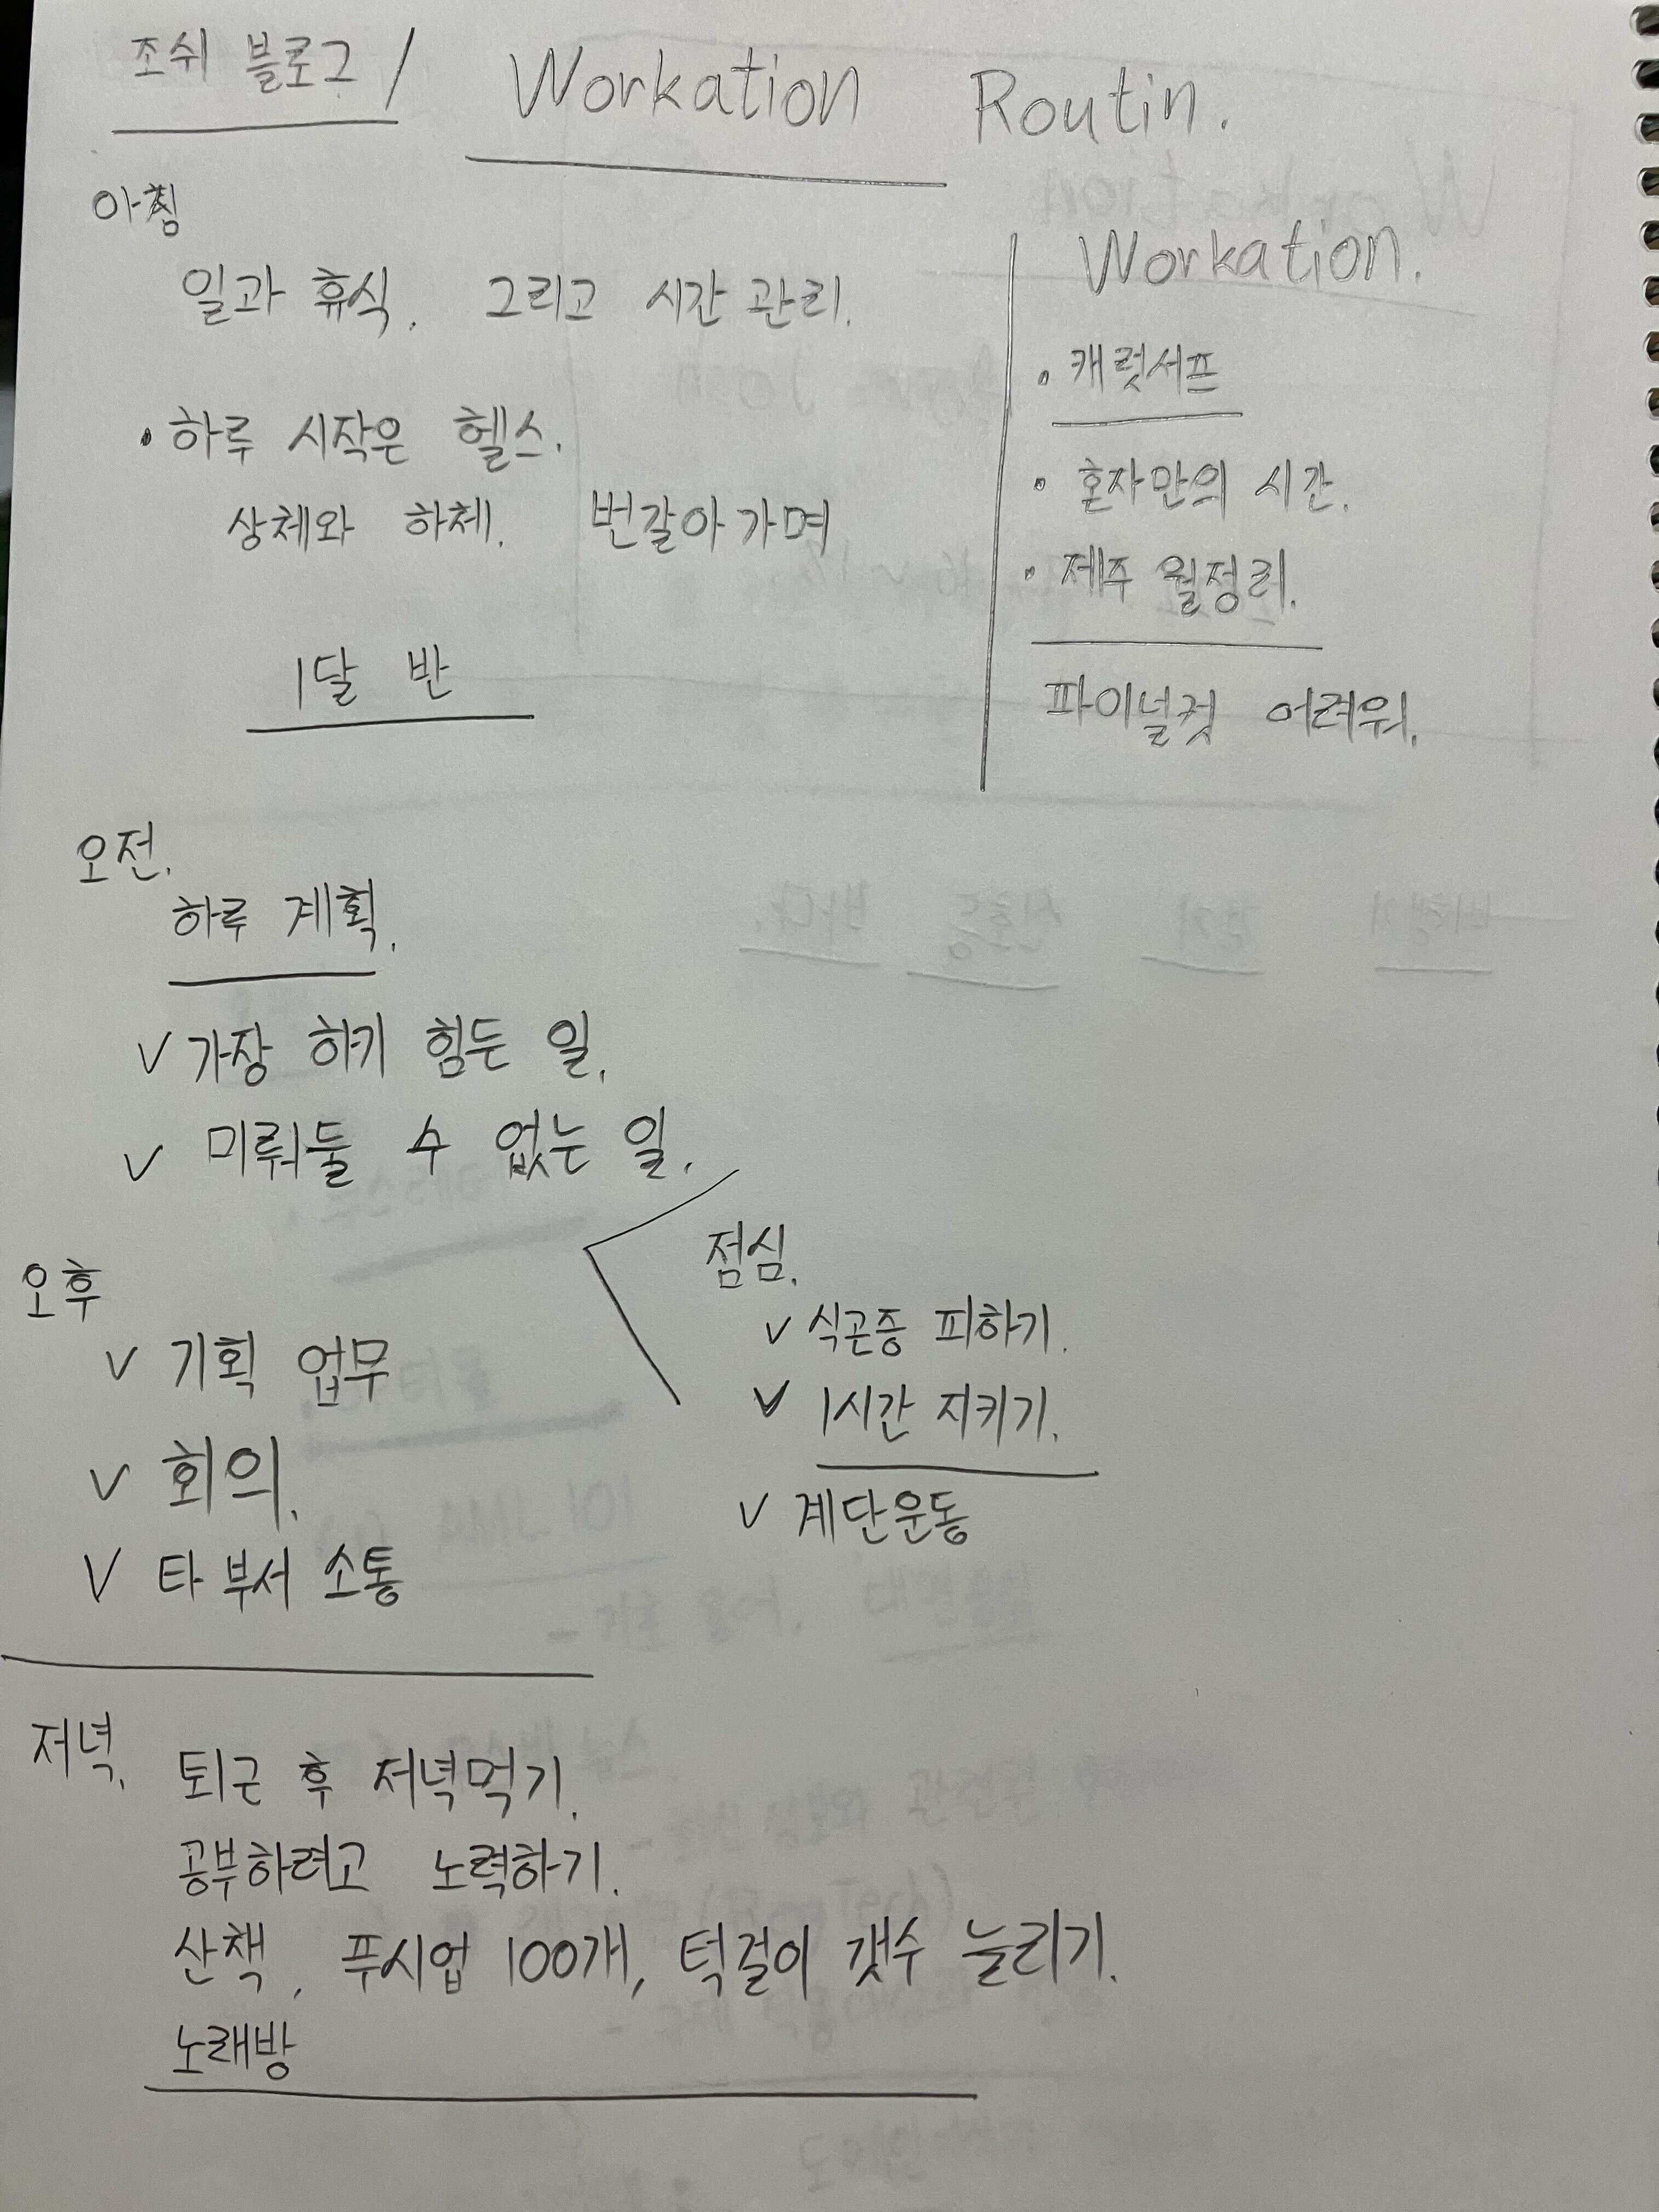 조쉬 블로그 / Workation Routin.
아침
일과 휴식. 그리고 시간 관리.
• 하루 시작은 헬스.
상체와 하체. 번갈아가며
1달 반
Workation.
• 캐럿서프
• 혼자만의 시간.
• 제주 월정리.
파이널컷 어려워.
오전.
하루 계획.
✓ 가장 하기 힘든 일.
✓ 미뤄둘 수 없는 일.
점심.
✓ 식곤증 피하기.
✓ 1시간 지키기.
✓ 계단운동
오후
✓ 기획 업무
✓ 회의.
✓ 타 부서 소통
저녁.
퇴근 후 저녁먹기.
공부하려고 노력하기.
산책, 푸시업 100개, 턱걸이 갯수 늘리기.
노래방